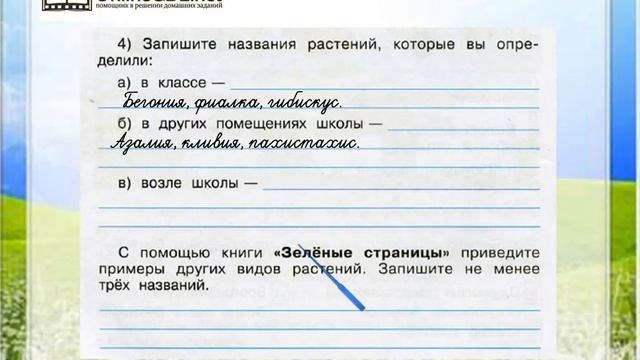 помощник в решении домашних заданий
4) Запишите названия растений, которые вы опре-
делили:
а) в классе —
Бегония, фиалка, гибискус.
б) в других помещениях школы —
Азалия, кливия, пахистахис.
в) возле школы —
С помощью книги «Зелёные страницы» приведите
примеры других видов растений. Запишите не менее
трёх названий.